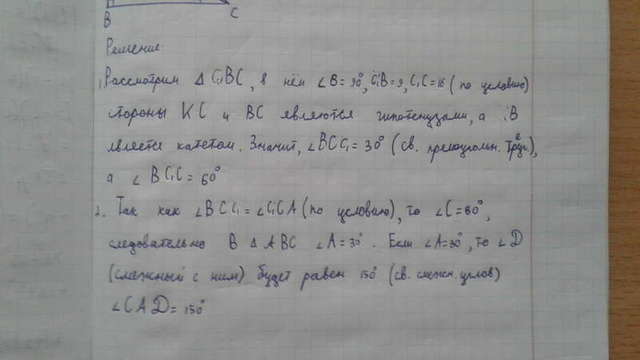 B
C
Решение
1. Рассмотрим ΔC₁BC, в нём ∠B = 90°, C₁B = 9, C₁C = 18 (по условию)
стороны и BC являются гипотенузами, а
является катетом. Значит, ∠BCC₁ = 30° (св. прямоугольн. треуг.),
а ∠BC₁C = 60°
2. Так как ∠BCC₁ = ∠C₁CA (по условию), то ∠C = 60°,
следовательно в ΔABC ∠A = 30°. Если ∠A = 30°, то ∠D
(смежный с ним) будет равен 150° (св. смежн. углов)
∠CAD = 150°